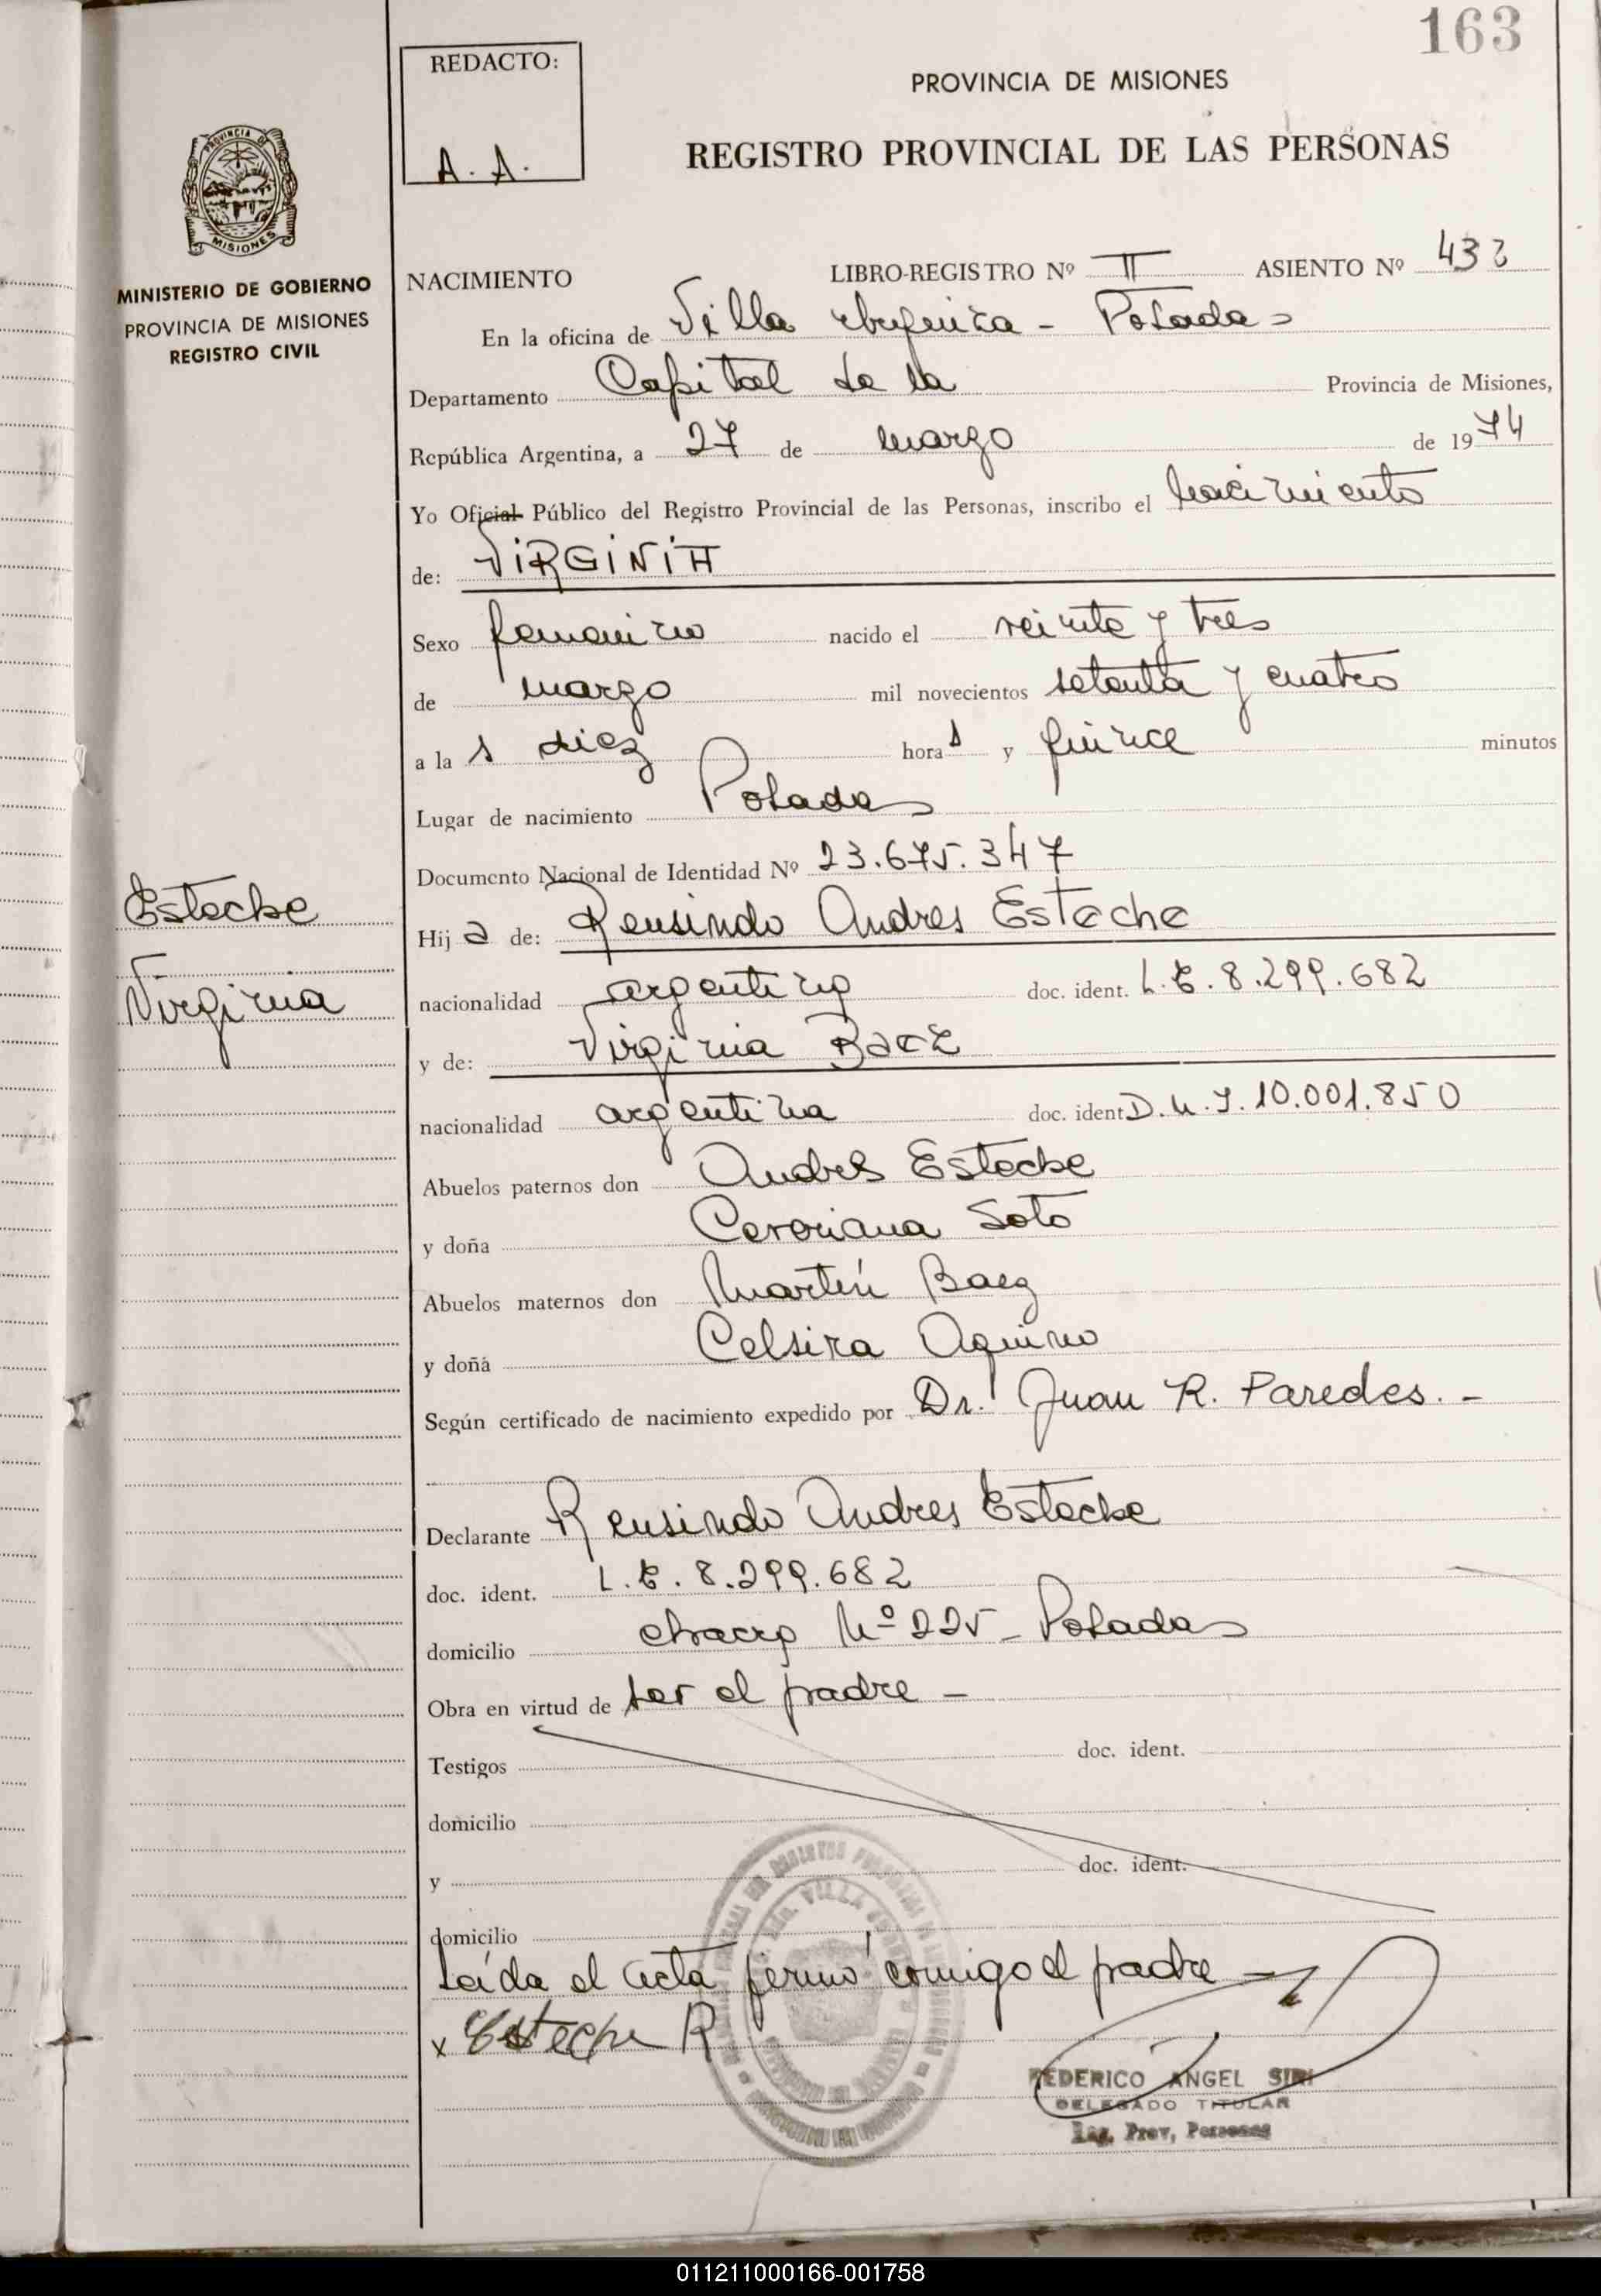 163
REDACTO:
A. A.
PROVINCIA DE MISIONES
REGISTRO PROVINCIAL DE LAS PERSONAS
PROVINCIA DE
MISIONES
MINISTERIO DE GOBIERNO
PROVINCIA DE MISIONES
REGISTRO CIVIL
NACIMIENTO LIBRO-REGISTRO Nº II ASIENTO Nº 432
En la oficina de Villa - Posadas
Departamento Capital de la Provincia de Misiones,
República Argentina, a 27 de marzo de 1974
Yo Oficial Público del Registro Provincial de las Personas, inscribo el nacimiento
de: VIRGINIA
Sexo femenino nacido el veinte y tres
de marzo mil novecientos setenta y cuatro
a la s diez hora s y quince minutos
Lugar de nacimiento Posadas
Documento Nacional de Identidad Nº 23.675.347
Esteche
Virginia
Hij a de: Reusindo Andres Esteche
nacionalidad argentino doc. ident. L.E. 8.299.682
y de: Virginia Baez
nacionalidad argentina doc. ident D.N.I. 10.001.850
Abuelos paternos don Andres Esteche
y doña Soto
Abuelos maternos don Martín Baez
y doña Celsira Aquino
Según certificado de nacimiento expedido por Dr. Juan R. Paredes. -
Declarante Reusindo Andres Esteche
doc. ident. L.E. 8.299.682
domicilio chacra Nº 225 - Posadas
Obra en virtud de ser el padre -
Testigos doc. ident.
domicilio
y doc. ident.
domicilio
Leída el acta firmó conmigo el padre
x Esteche R
FEDERICO ANGEL SIRI
DELEGADO TITULAR
Reg. Prov, Personas
011211000166-001758